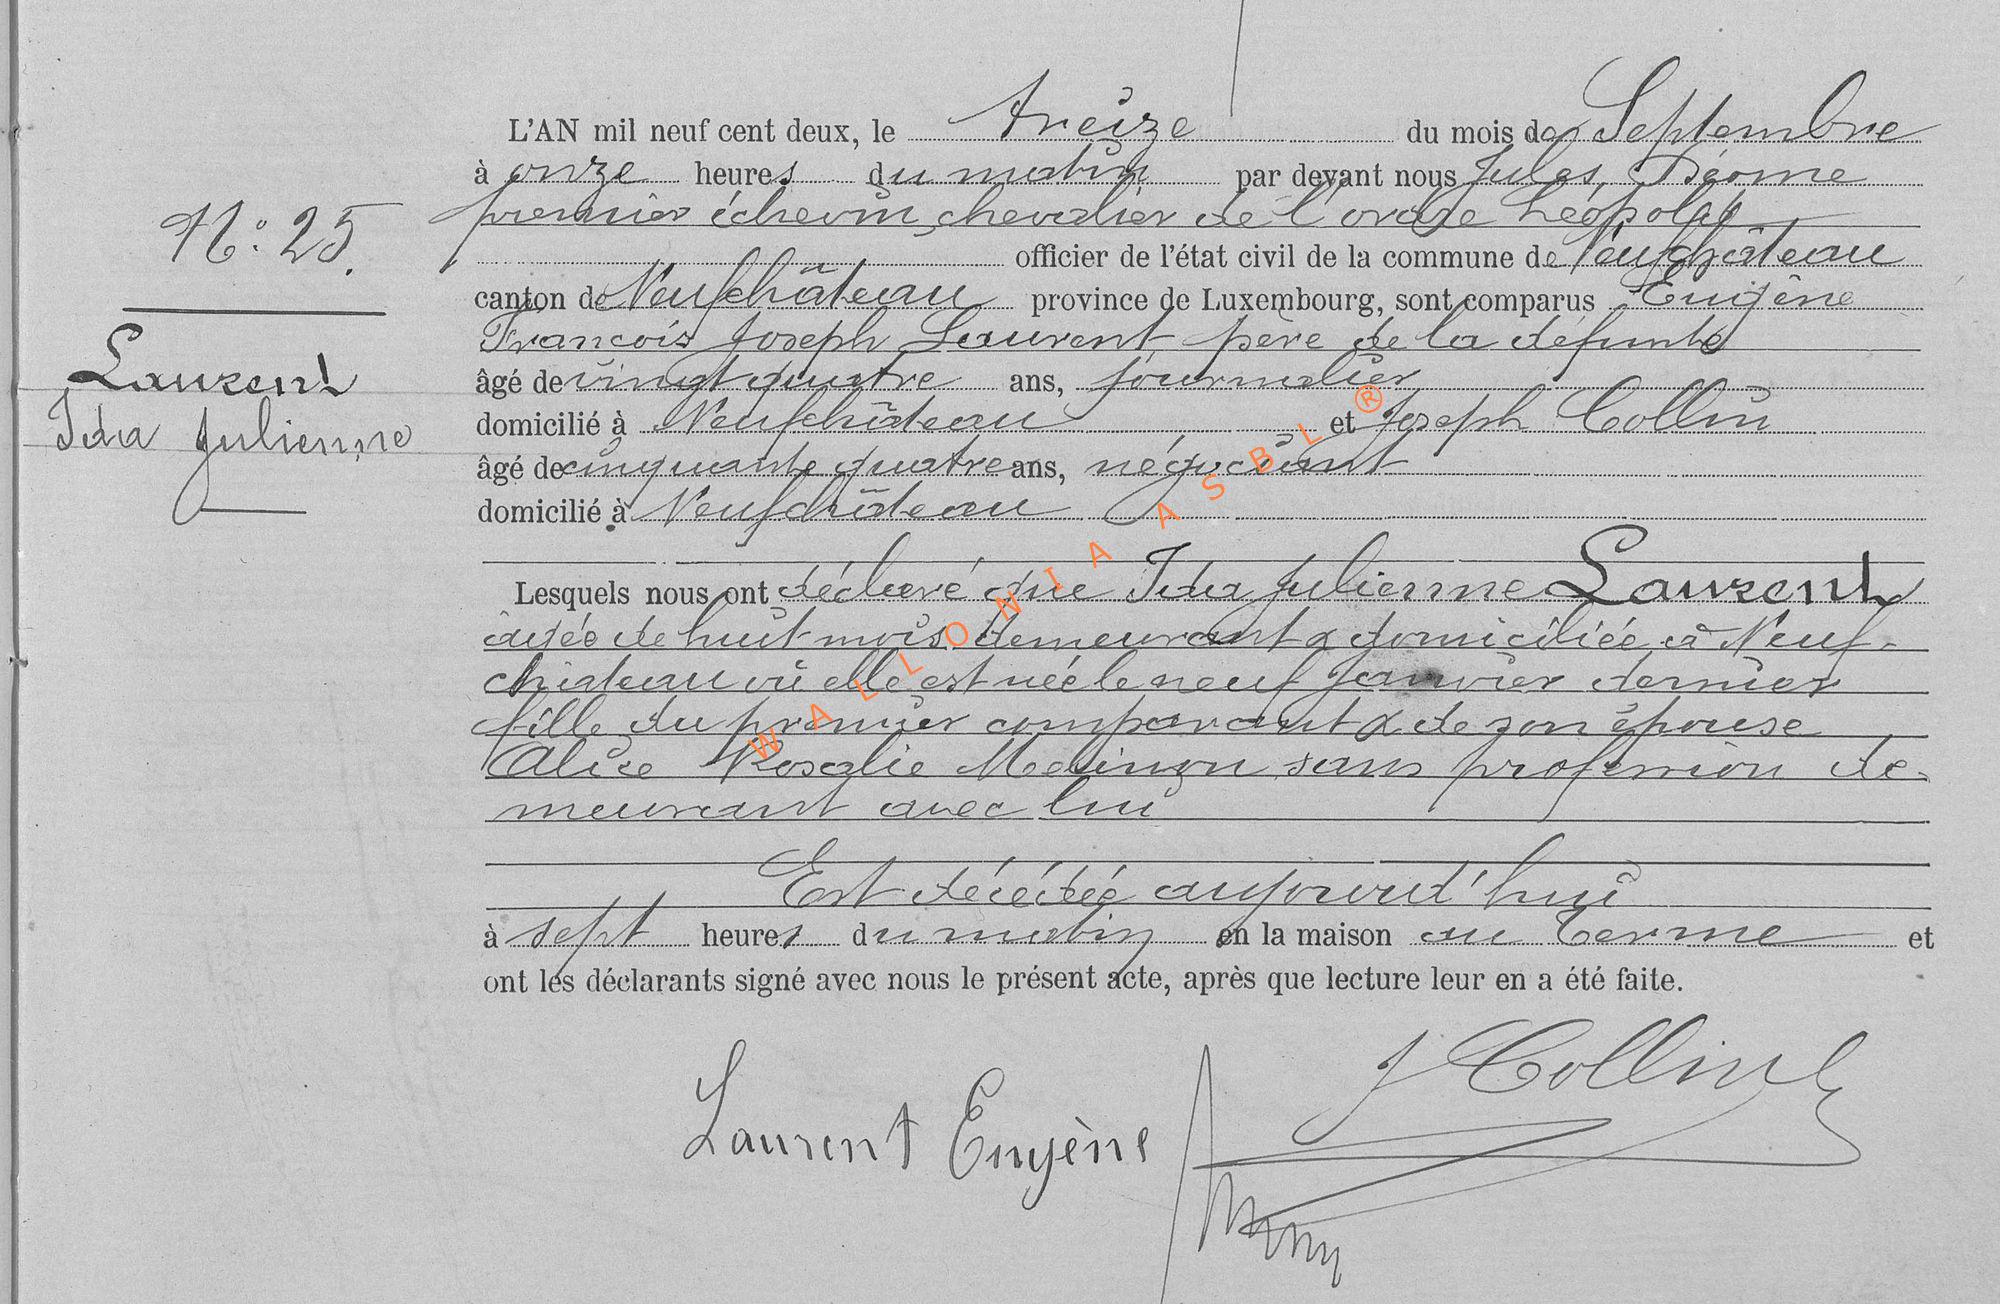 N° 25.
Laurent
Ida Julienne
L'AN mil neuf cent deux, le treize du mois de Septembre
à onze heures du matin par devant nous Jules,
premier échevin, chevalier de l'ordre Léopold
officier de l'état civil de la commune de Neufchâteau
canton de Neufchâteau province de Luxembourg, sont comparus Eugène
François Joseph Laurent père de la défunte
âgé de vingt quatre ans, journalier
domicilié à Neufchâteau et Joseph Collin
âgé de cinquante quatre ans, négociant
domicilié à Neufchâteau
Lesquels nous ont déclaré que Ida Julienne Laurent
âgée de huit mois, demeurant & domiciliée à Neuf-
château où elle est née le neuf Janvier dernier
fille du premier comparant & de son épouse
Alice Rosalie sans profession de-
meurant avec lui
Est décédée aujourd'hui
à sept heures du matin en la maison au Terme et
ont les déclarants signé avec nous le présent acte, après que lecture leur en a été faite.
Laurent Eugène
J Collin
WALLONIA ASBL ®